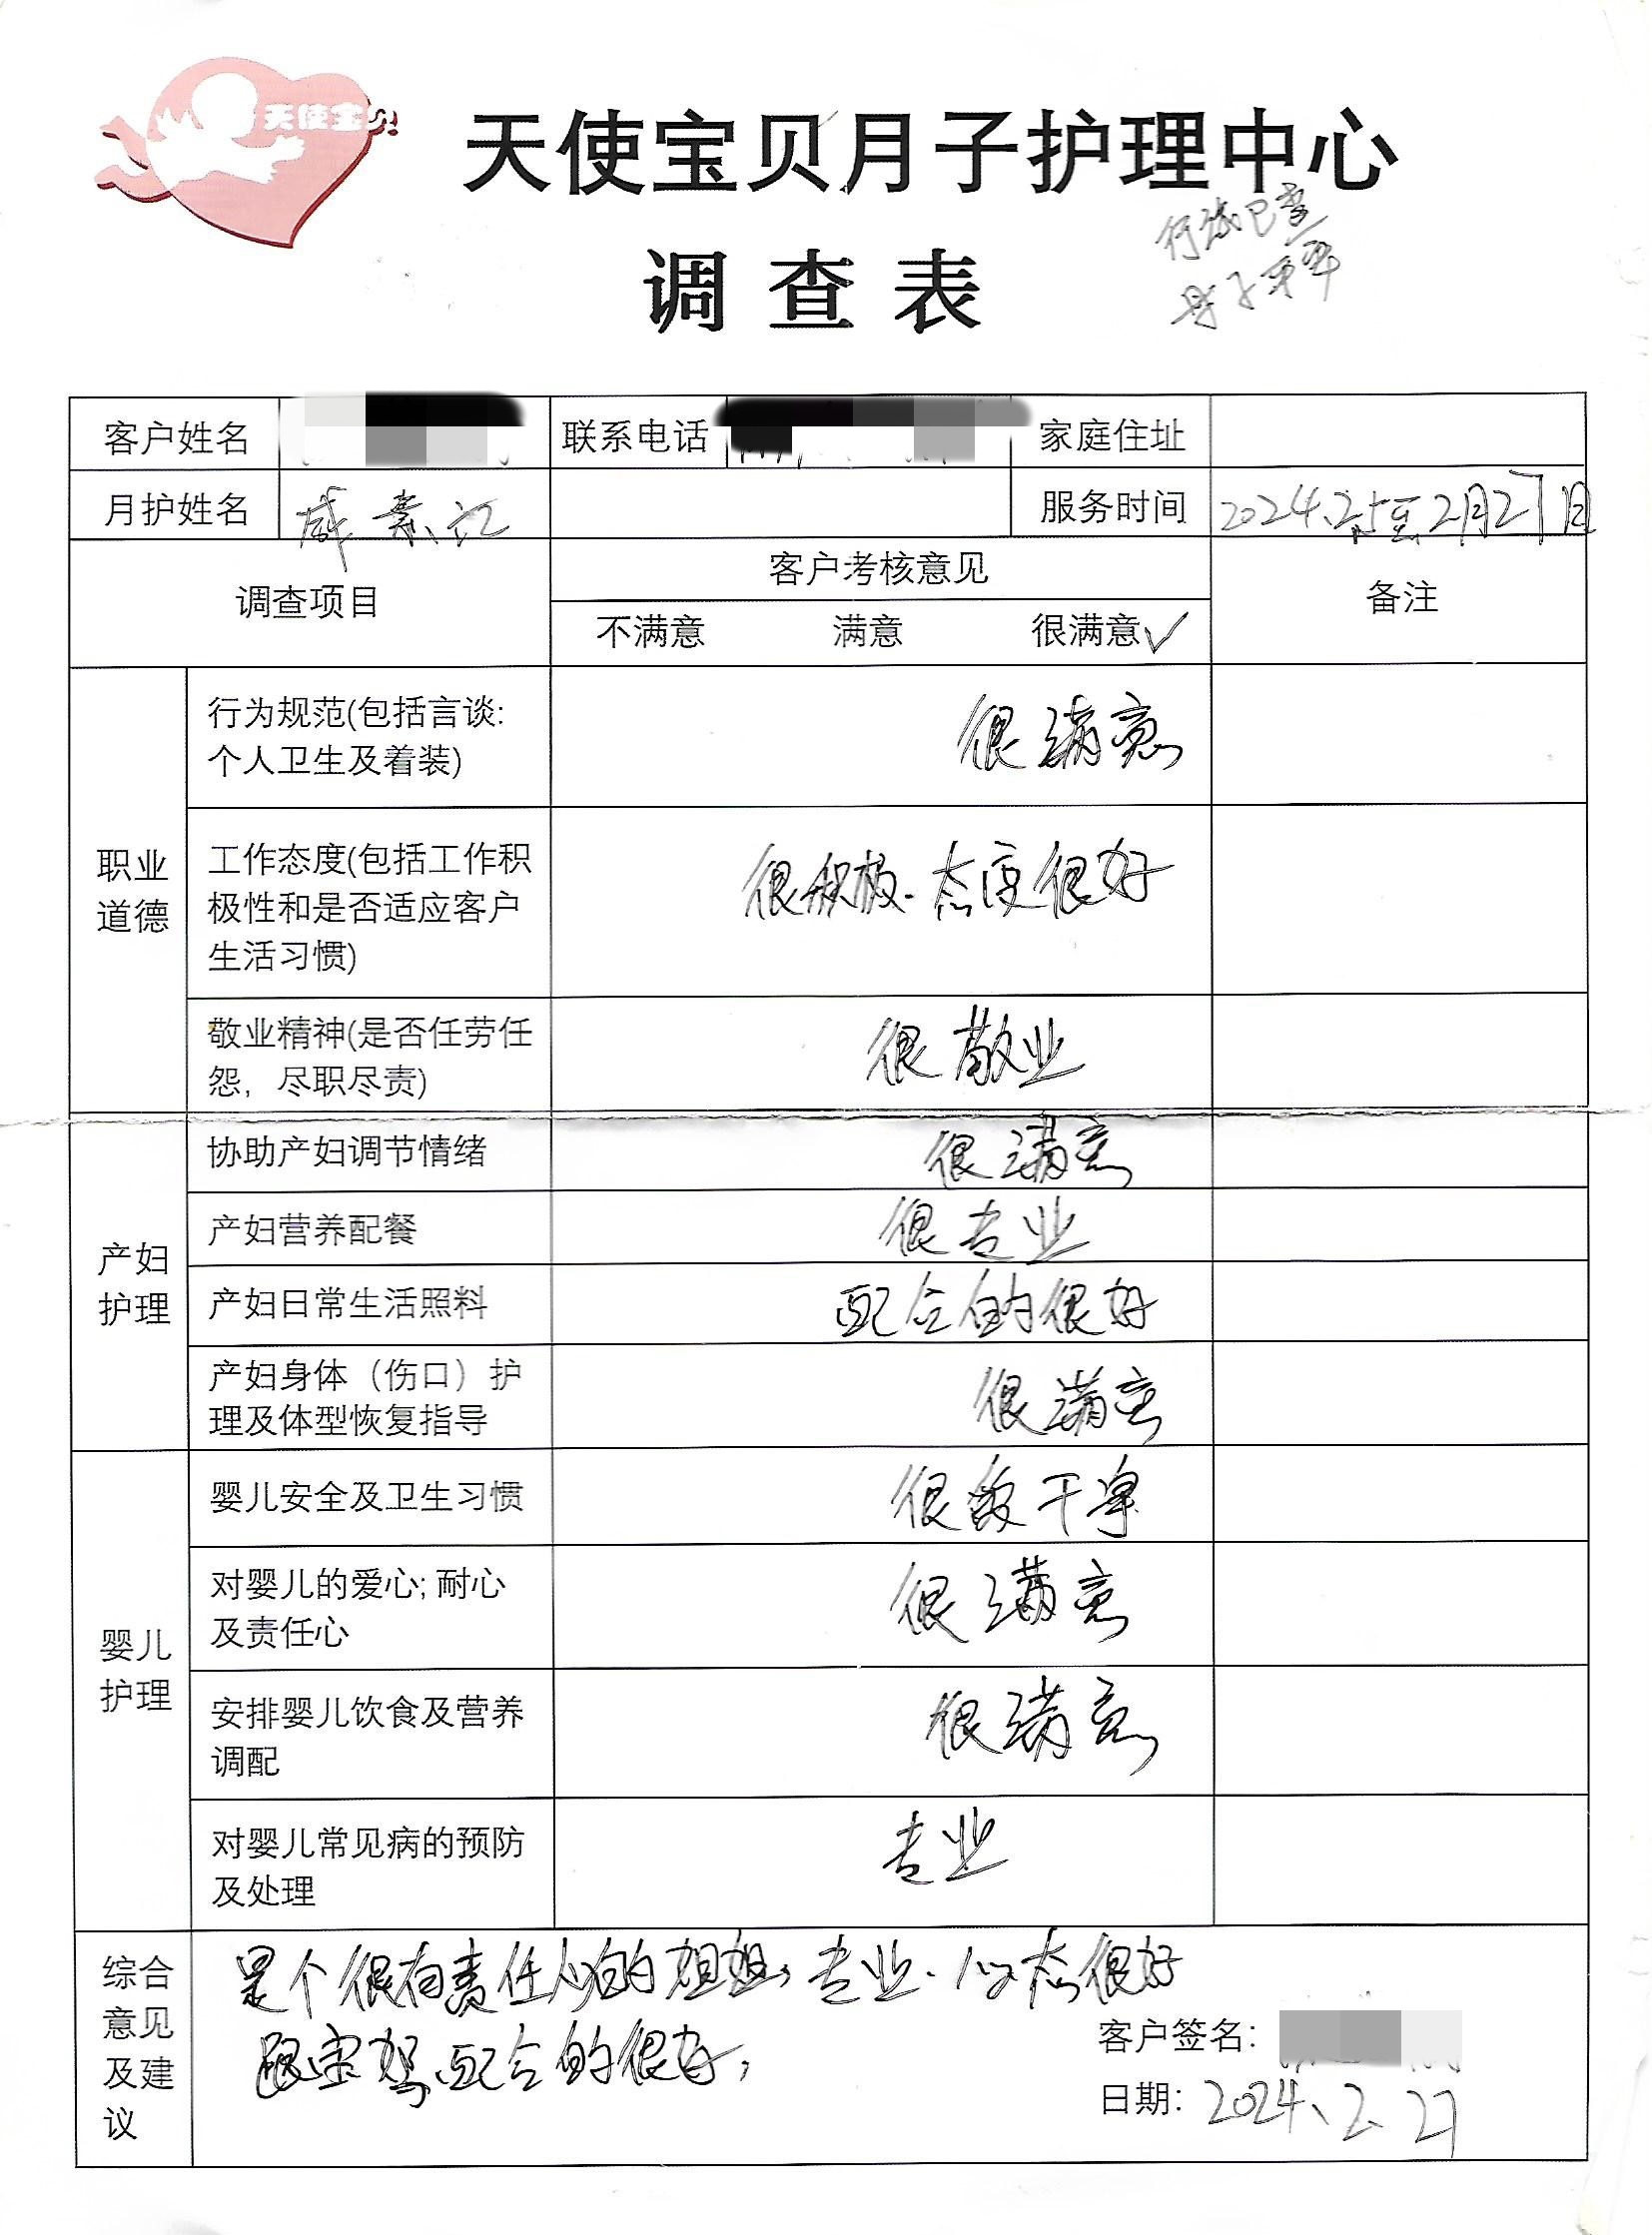 天使宝贝
天使宝贝月子护理中心
调查表
客户姓名
联系电话
家庭住址
月护姓名
素江
服务时间
2024.2.5至2月27日
调查项目
客户考核意见
备注
不满意 满意 很满意✓
职业
道德
行为规范(包括言谈:
个人卫生及着装)
很满意
工作态度(包括工作积
极性和是否适应客户
生活习惯)
很积极.态度很好
敬业精神(是否任劳任
怨，尽职尽责)
很敬业
产妇
护理
协助产妇调节情绪
很满意
产妇营养配餐
很专业
产妇日常生活照料
配合的很好
产妇身体（伤口）护
理及体型恢复指导
很满意
婴儿
护理
婴儿安全及卫生习惯
很 干净
对婴儿的爱心; 耐心
及责任心
很满意
安排婴儿饮食及营养
调配
很满意
对婴儿常见病的预防
及处理
专业
综合
意见
及建
议
是个很有责任心的姐姐，专业.心态很好
跟宝妈配合的很好，
客户签名:
日期: 2024.2.27